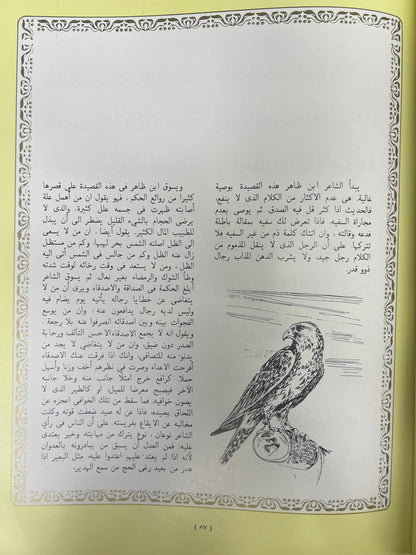 يبدأ الشاعر ابن ظاهر هذه القصيدة بوصية
غالية، هى عدم الاكثار من الكلام الذى لا ينفع،
فالحديث اذا كثر قل فيه الصدق، ثم يوصى بعدم
مجاراة السفيه، فاذا تعرض لك سفيه بمقالة باطلة
فدعه وقالته، وان اتتك كلمة ذم من غير السفيه فلا
تتركها. على أن الرجل الذى لا ينقل المذموم من
الكلام رجل جيد، ولا يشرب الدهن المذاب رجال
ذوو قدر.
ويسوق ابن ظاهر فى هذه القصيدة على قصرها
كثيرا من روائع الحكم، فهو يقول ان من أهمل علة
أصابته ظهرت فى جسمه علل كثيرة، والذى لا
يرضى الحجام بالشىء القليل يضطر الى أن يبذل
للطبيب المال الكثير، ويقول أيضا، ان من لا يسعى
الى الظل اصلته الشمس بحر لهيبها، وكم من مستظل
زال عنه الظل وكم من جالس فى الشمس أتى اليه
الظل، ومن لا يستعد فى وقت رخائه لوقت شدته
وطأ الشوك والرمضاء بغير نعال. ثم يسوق الشاعر
أبلغ الحكمة فى الصداقة والأصدقاء ويرى أن من لا
يتغاضى عن خطايا رجاله يأتيه يوم يضام فيه
وليس لديه رجال يدافعون عنه، وان من يوسع
الفجوات بينه وبين اصدقائه انصرفوا عنه بلا رجعة.
ويقول انه لا يجمع الاصدقاء الا حسن التآلف ورحابة
الصدر دون ضيق، وان من لا يتغاضى لا يجد من
يدنو منه للتصافى، وانك اذا فرقت عنك الاصدقاء
أفرحت الاعداء وصرت فى نظرهم أخف وزنا وأسهل
حملا. كرافع خرج امتلأ جانب منه وخلا جانبه
الآخر فيصبح معرضا للميل او كالطير الذى لا
يصون خوافيه. فما سقط من تلك الخوافى اعجزه عن
اللحاق بصيده، فاذا عن له صيد ضعفت قوته وكلت
مخالبه عن الايقاع بفريسته. على أن الناس فى رأى
الشاعر نوعان، نوع يترك من ميابنته، وخير يعتدى
عليه، فمن العدل أن يسبق من يبادرونه بالعدوان
لأنه اذا لم يعتد عليهم اعتدوا عليه، مثل البعير اذا
هدر من بعيد رغى الحج من سمع الهدير.
( ٨٧ )